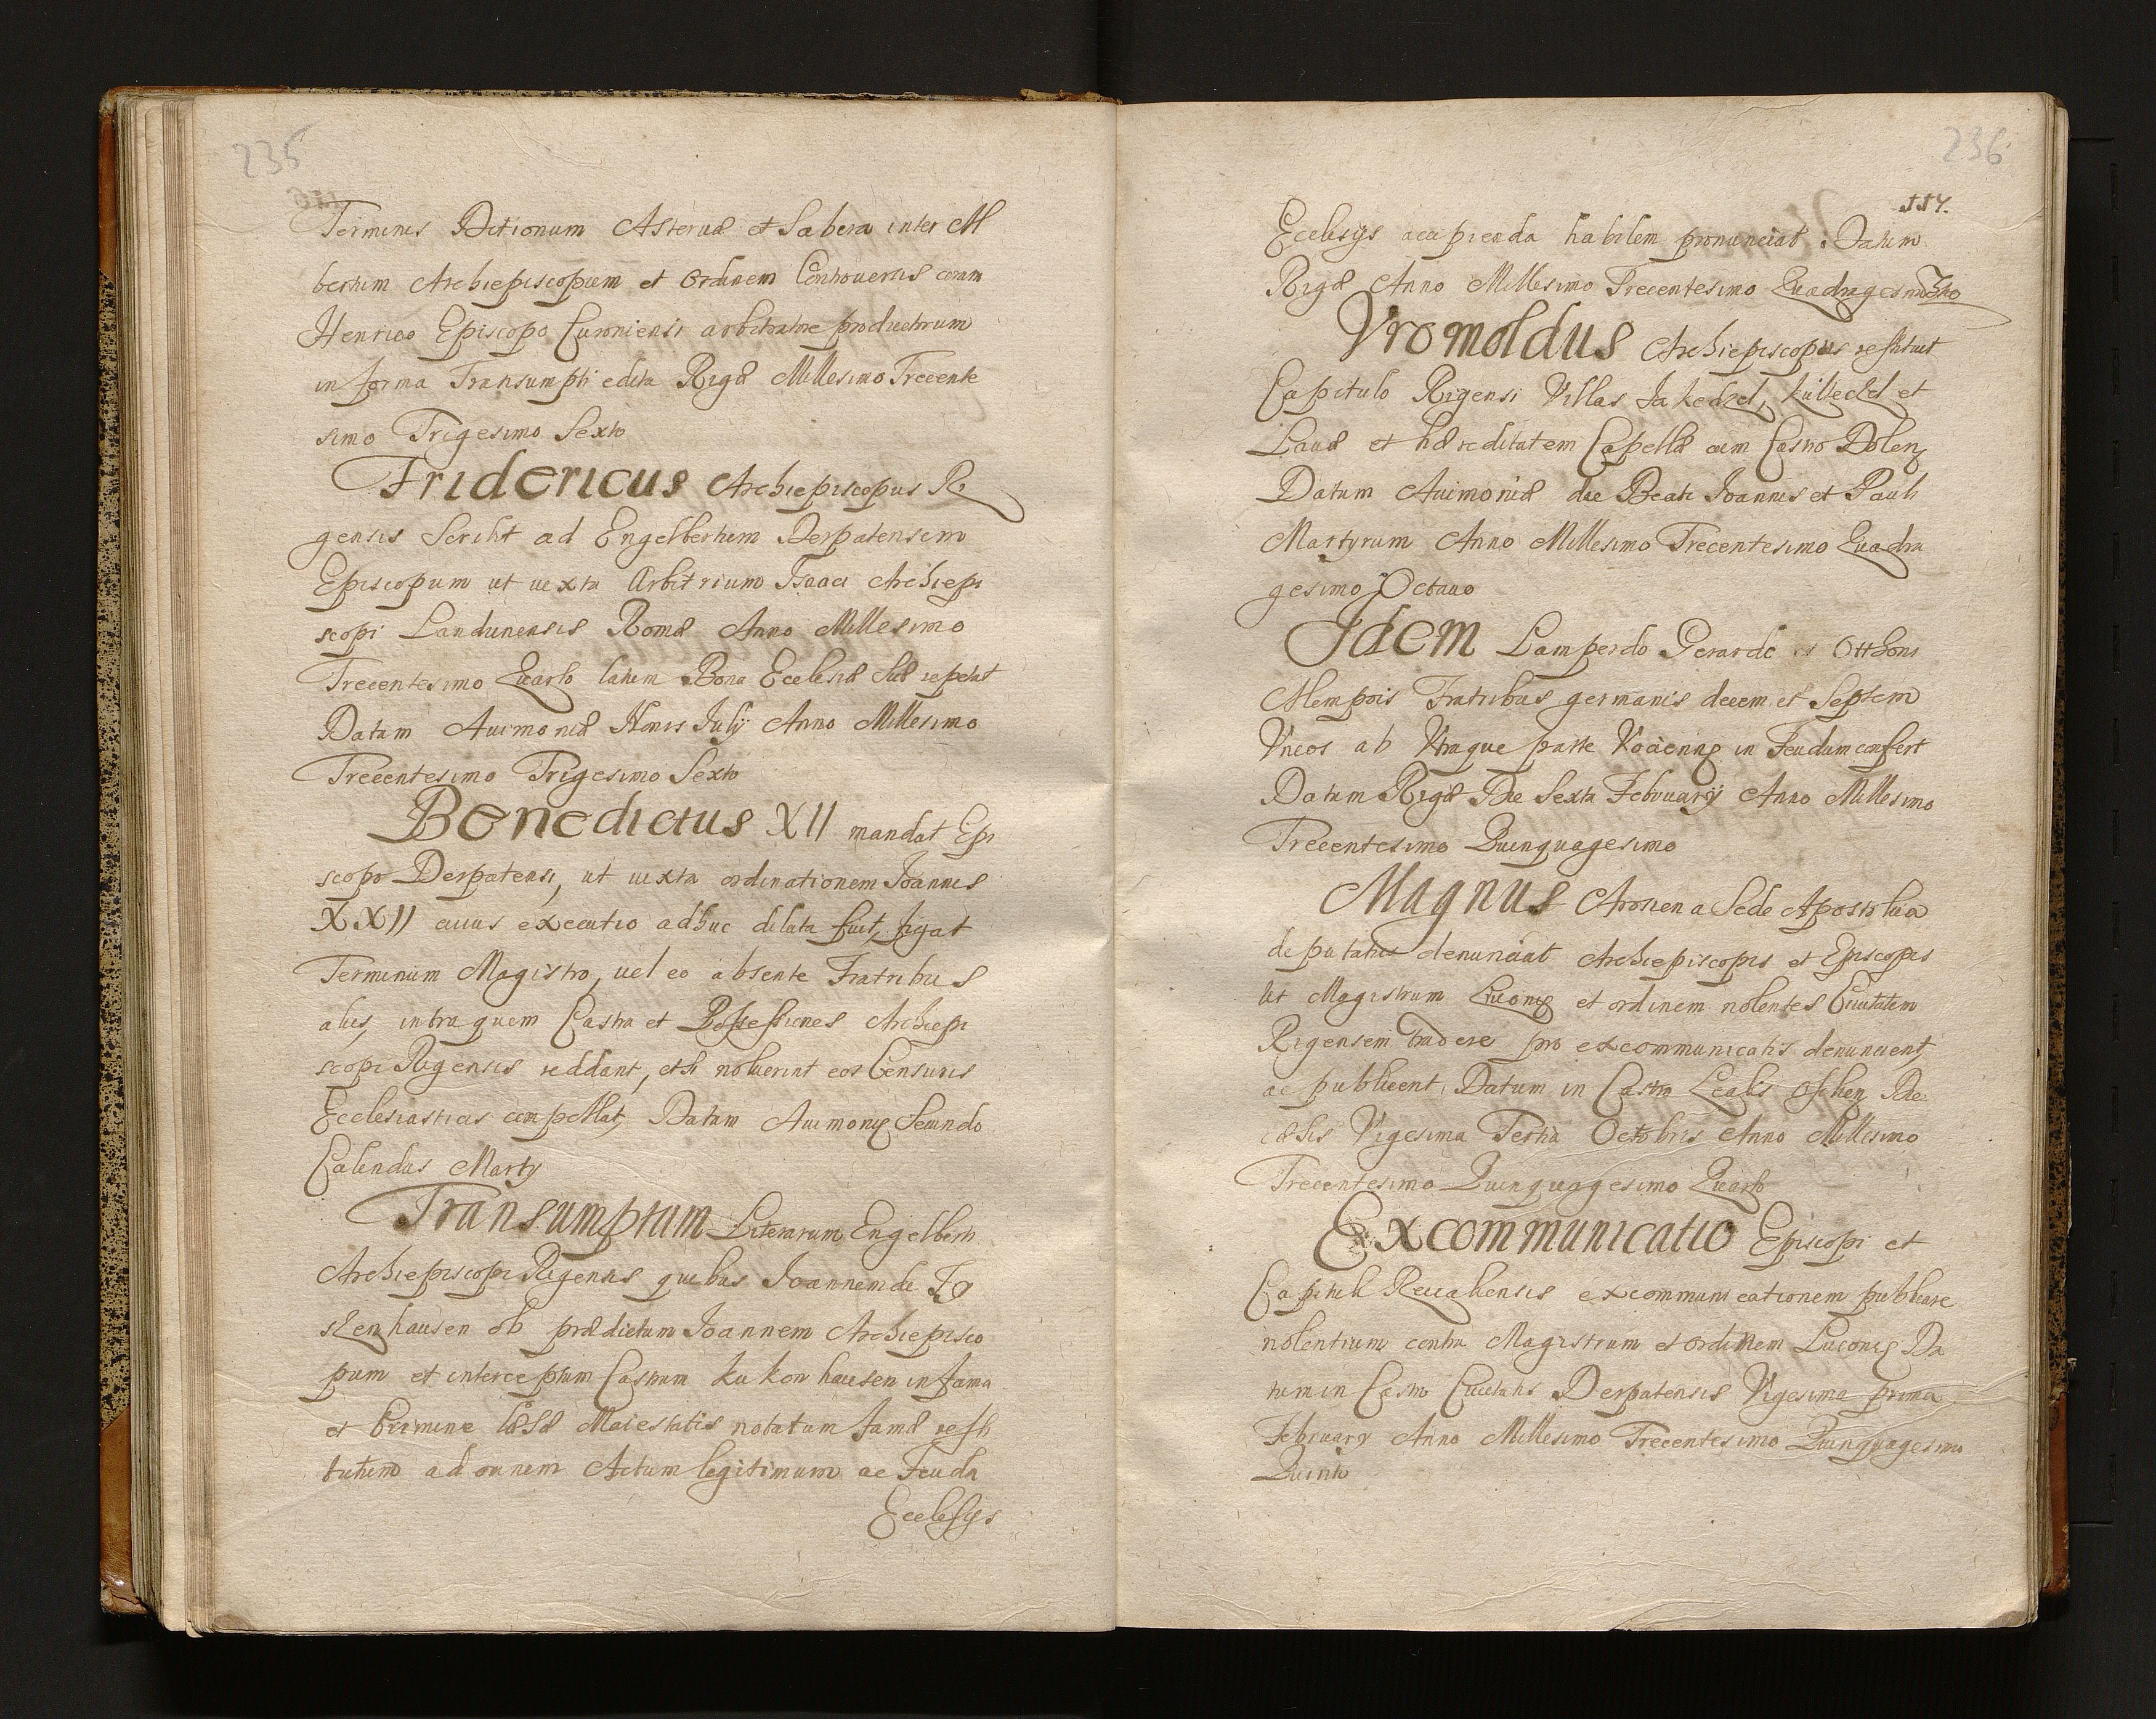 235
Terminis Ditionum Asteruæ et Sabera inter Al
bertum Archiepiscopum et Ordinem Controuersis coram
Henrico Episcopo Curoniensi arbitratore productorum
in forma Transumpti edita Rigæ Millesimo Trecente
simo Trigesimo Sexto
Fridericus Archiepiscopus Ri
gensis Scribit ad Engelbertum Derpatensem
Episcopum ut iuxta Arbitrium Isaaci Archiepi
scopi Landunensis Romæ Anno Millesimo
Trecentesimo Quarto latum Bona Ecclesiæ suæ repetat
Datum Auimoniæ Nonis Julij Anno Millesimo
Trecentesimo Trigesimo Sexto
Benedictus XII mandat Epi
scopo Derpatensi, ut iuxta ordinationem Joannis
XXII cuius executio adhuc dilata fuit, figat
Terminum Magistro, uel eo absente Fratribus
alijs, intra quem Castra et Possessiones Archiepi
scopi Rigensis reddant, et si noluerint eos Censuris
Ecclesiasticis compellat, Datum Auimonię Secundo
Calendas Martij
Transumptum Literarum Engelberti
Archiepiscopi Rigensis quibus Joannem de
skenhausen ob prædictum Joannem Archiepisco
pum et interceptum Castrum Kukonhausen infama
et Crimine læsæ Maiestatis notatum famæ resti
tutum ad omnem Actum legitimum ac Feuda
Ecclesijs
236
117.
Ecclesijs accipienda habilem pronunciat. Datum
Rigæ Anno Millesimo Trecentesimo Quadragesimo
Vromoldus Archiepiscopus restituit
Capitulo Rigensi Villas Jakedzel, Kulledzel et
Lauæ et hæreditatem Capellæ cum Castro Dolenę
Datum Auimoniæ die Beati Joannis et Pauli
Martyrum Anno Millesimo Trecentesimo Quadra
gesimo Octauo
Idem Lamperdo Gerardo et Otthoni
Mempois Fratribus germanis decem et Septem
Vncos ab Vtraque parte in Feudum confert
Datum Rigæ Die Sexta Februarij Anno Millesimo
Trecentesimo Quinquagesimo
Magnus Aronen a Sede Apostolica
deputatus denunciat Archiepiscopis et Episcopis
ut Magistrum Liuonię et ordinem nolentes Ciuitatem
Rigensem tradere pro excommunicatis denuncient,
ac publicent, Datum in Castro Lealis Osilien Die
cæsis Vigesima Tertia Octobris Anno Millesimo
Trecentesimo Quinquagesimo Quarto
Excommunicatio Episcopi et
Capituli Reualiensis excommunicationem publicare
nolentium contra Magistrum et ordinem Liuonię Da
tum in Castro Ciuitatis Derpatensis Vigesima prima
Februarij Anno Millesimo Trecentesimo Quinquagesimo
Quinto